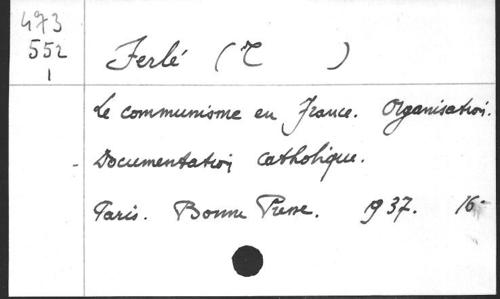 473
552
1
Ferlé (T )
Le communisme en France. Organisation.
Documentation catholique.
Paris. Bonne Presse. 1937. 16-